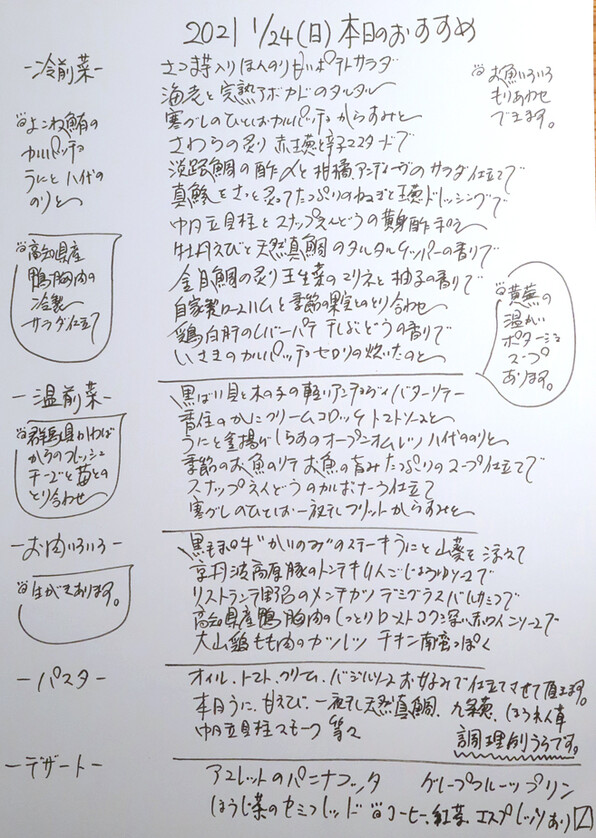 2021 1/24(日)本日のおすすめ
-冷前菜-
さつま芋入りほんのり甘いポテトサラダ
海老と完熟アボカドのタルタル
寒ざしのひとしおカルパッチョからすみと
さわらの炙り 赤玉葱と辛子マスタードで
淡路鯛の酢〆と柑橘、アンディーヴのサラダ仕立てで
真鯵をさっと炙ってたっぷりのねぎと玉葱ドレッシングで
帆立貝柱とスナップえんどうの黄身酢和え
牡丹えびと天然真鯛のタルタルケッパーの香りで
金目鯛の炙り 壬生菜のマリネと柚子の香りで
自家製ロースハムと季節の果実とのとり合わせ
鶏白肝のレバーパテ 干しぶどうの香りで
いさきのカルパッチョセロリの炊いたのと
お魚いろいろ
もりあわせ
できます。
よこわ鮪の
カルパッチョ
うにと八代の
のりと
高知県産
鴨胸肉の
冷製
サラダ仕立て
黄蕪の
温かい
ポタージュ
スープ
あります。
-温前菜-
黒ばい貝と木の子の軽いアンチョヴィバターソテー
香住のかにクリームコロッケ トマトソースと
うにと釜揚げしらすのオープンオムレツ 八代ののりと
季節のお魚のソテー お魚の旨みたっぷりのスープ仕立てで
スナップえんどうのカルボナーラ仕立て
寒ざしのひとしお一夜干しフリットからすみと
群馬県かわば
からのフレッシュ
チーズと苺との
とり合わせ
-お肉いろいろ-
黒毛和牛"かいのみ"のステーキうにと山葵を添えて
京丹波高原豚のトンテキりんごじょうゆソースで
リストランテ野呂のメンチカツ デミグラスバルサミコで
高知県産鴨胸肉のしっとりローストコク深い赤ワインソースで
大山鶏もも肉のカツレツ チキン南蛮っぽく
生がきあります。
-パスタ-
オイル、トマト、クリーム、バジルソースお好みで仕立てさせて頂きます。
本日うに、甘えび、一夜干し天然真鯛、九条葱、ほうれん草
帆立貝柱スモーク 等々
調理例うらです。
-デザート-
アマレットのパンナコッタ グレープフルーツプリン
ほうじ茶のセミフレッド コーヒー、紅茶、エスプレッソあり